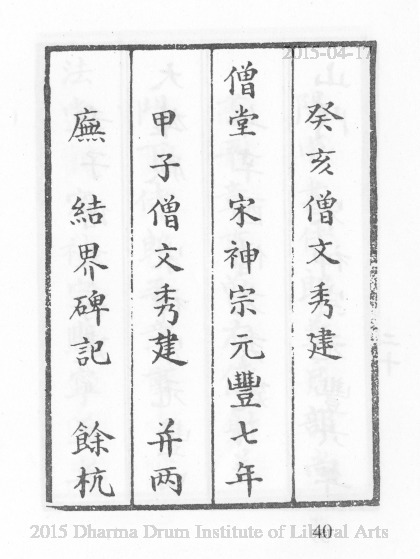 2015-04-17
癸亥僧文秀建
僧堂 宋神宗元豐七年
甲子僧文秀建 并两
廡 結界碑記 餘杭
40
2015 Dharma Drum Institute of Liberal Arts